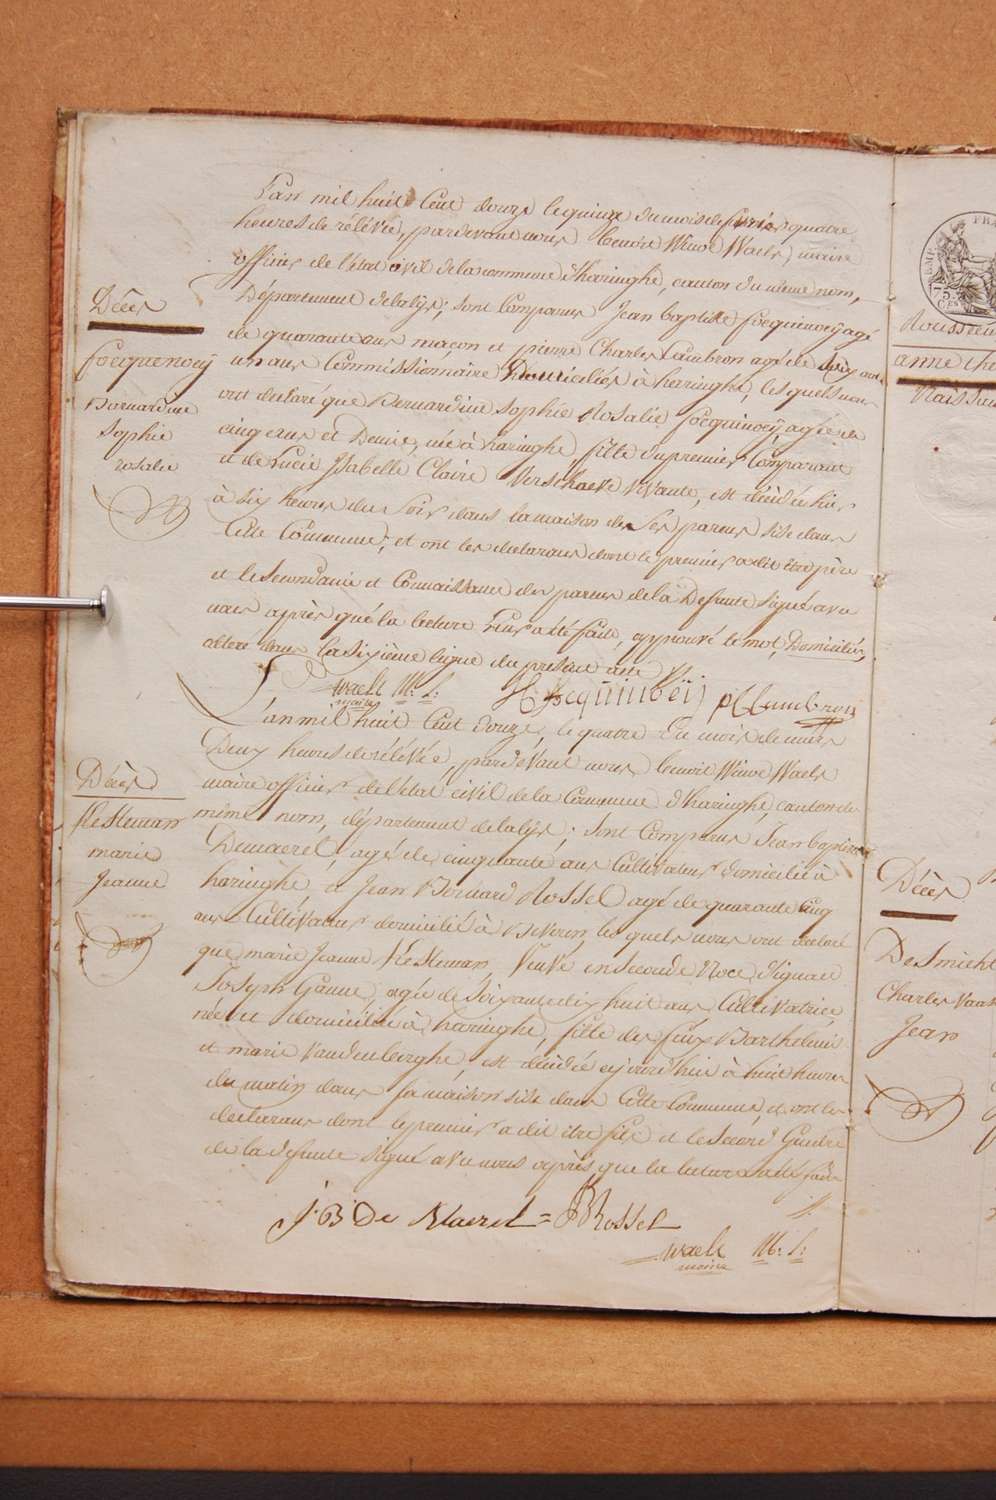 L'an mil huit Cent douze le quinze du mois de fevrier quatre
heures de rélévée, pardevant nous benoit Winoc Waels, maire
officier de l'etat civil de la commune d'haringhe, canton du même nom,
Département de la lijs; sont Comparus Jean baptiste focquenoeij agé
de quarante ans maçon et pierre Charles Cambron agé de
un ans Commissionnaire Domiciliés à haringhe, les quels nous
ont declaré que Bernardine Sophie Rosalie focquenoeij, agée de
cinq ans et Demie, née à haringhe, fille du premier Comparant
et de Lucie Isabelle Claire Verschaeve vivante, est décédée hier
à six heures du Soir dans la maison de Ses parens sise dans
Cette Commune; et ont les declarans dont le premier a dit être père
et le Second ami et Connaissance des parens de la Defunte Signé avec
nous après que la lecture Leur a été faite, approuvé le mot, Domiciliés,
altéré dans la Sixième ligne du présent acte
Waels M. L.
maire
pCCambron
L'an mil huit Cent Douze, le quatre Du mois de mars
Deux heures de rélévée, pardevant nous benoit Winoc Waels
maire officier de l'etat civil de la Commune d'haringhe, canton du
même nom, département de la lijs; Sont Comparus Jean baptiste
Demaerel, agé de cinquante ans Cultivateur domicilié à
haringhe et Jean Bernard Rossel agé de quarante cinq
ans Cultivateur domicilié à Beveren, les quels nous ont declaré
que marie Jeanne Kesteman, Veuve en Seconde Noce d'ignace
Joseph Ganne, agée de Soixante dix huit ans, Cultivatrice,
née et domiciliée à haringhe, fille de feux Barthelemi
et marie Vandenberghe, est décédée aujourd'hui à huit heures
du matin dans sa maison sise dans Cette Commune, et ont les
declarans dont le premier a dit être fils et le Second Gendre
de la defunte Signé avec nous après que la lecture a été faite
J. B. De Maerel = JB Rossel
Waels M. L.
maire
Décès
focquenoeij
Bernardine
Sophie
rosalie
Décès
Kesteman
marie
Jeanne
anne the
Décès
DeSmicht
Charles
Jean